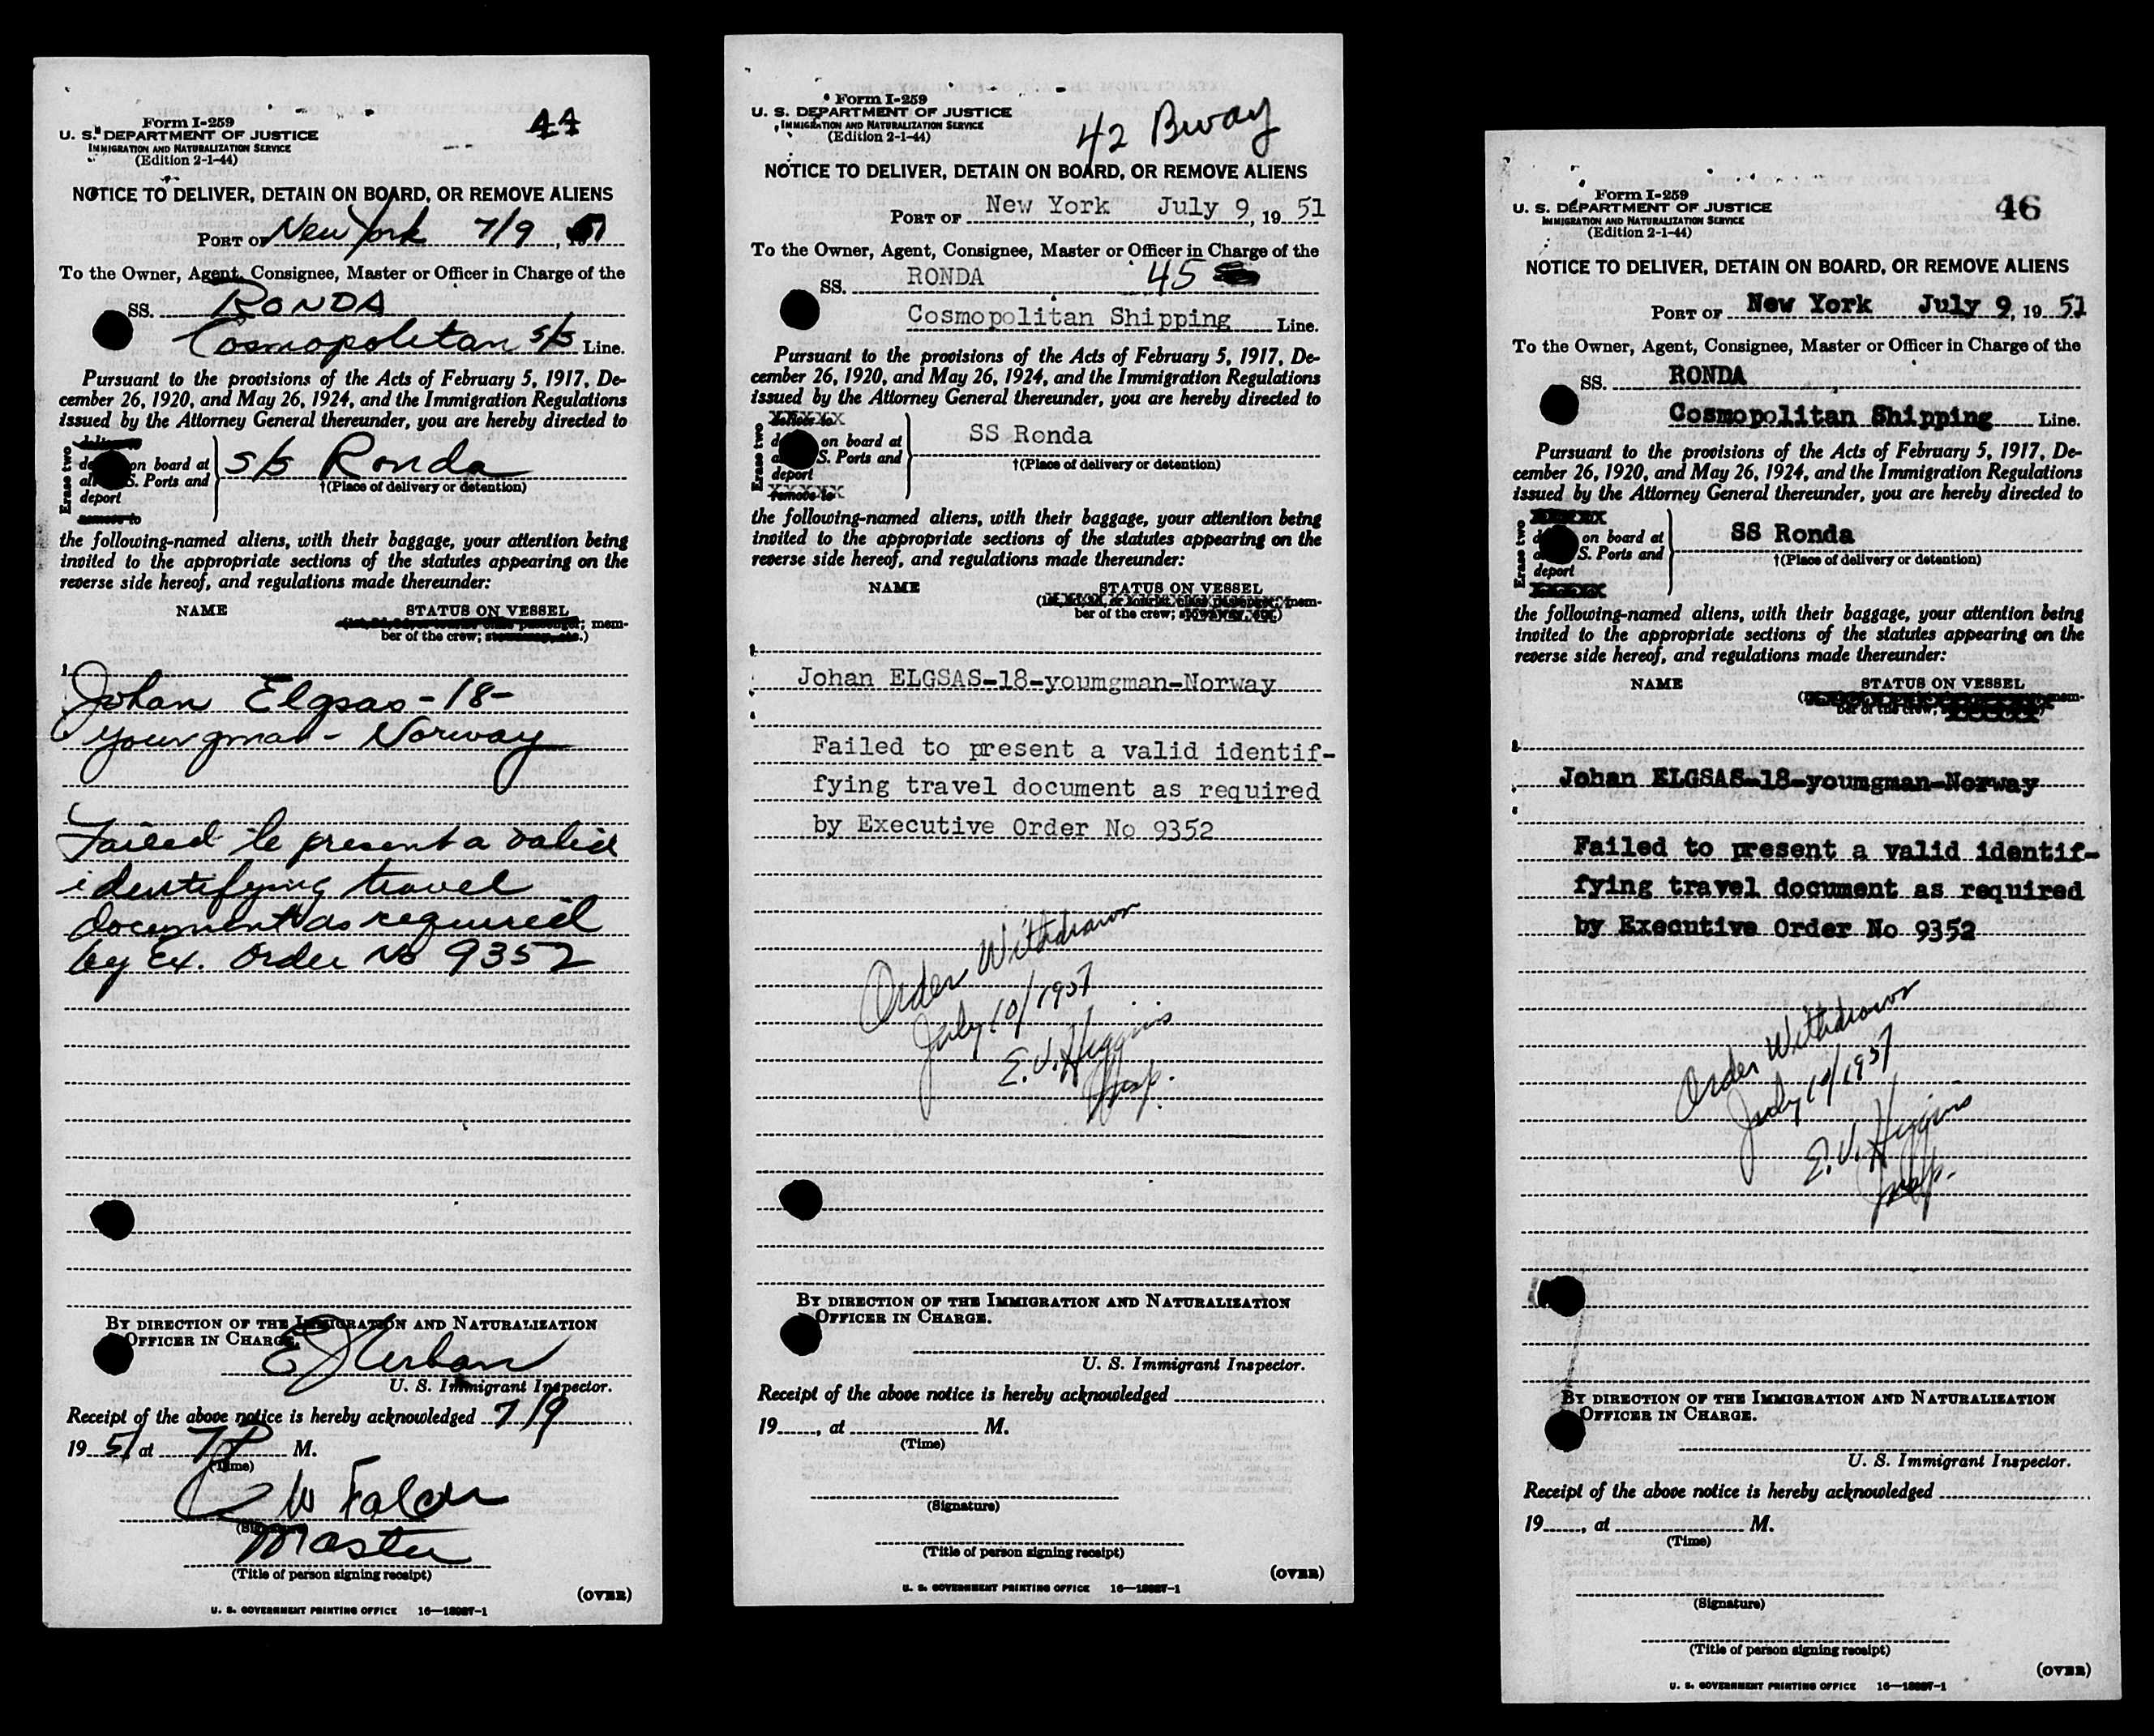 Form I-259
44
U. S. DEPARTMENT OF JUSTICE
IMMIGRATION AND NATURALIZATION SERVICE
(Edition 2-1-44)
NOTICE TO DELIVER, DETAIN ON BOARD, OR REMOVE ALIENS
PORT OF New York 7/9, 1951
To the Owner, Agent, Consignee, Master or Officer in Charge of the
SS. RONDA
Cosmopolitan S/S Line.
Pursuant to the provisions of the Acts of February 5, 1917, De-
cember 26, 1920, and May 26, 1924, and the Immigration Regulations
issued by the Attorney General thereunder, you are hereby directed to
Erase two
on board at
S. Ports and
deport
remove to
S/S Ronda
†(Place of delivery or detention)
the following-named aliens, with their baggage, your attention being
invited to the appropriate sections of the statutes appearing on the
reverse side hereof, and regulations made thereunder:
NAME STATUS ON VESSEL
(1st, 2d, 3d, or tourist class passenger; mem-
ber of the crew; stowaway, etc.)
1.
Johan Elgsas-18-
youngman- Norway
Failed to present a valid
identifying travel
document as required
by Ex. Order No 9352
BY DIRECTION OF THE IMMIGRATION AND NATURALIZATION
OFFICER IN CHARGE.
U. S. Immigrant Inspector.
Receipt of the above notice is hereby acknowledged 7/9
1951 at 7 P M.
(Time)
(Signature)
Master
(Title of person signing receipt)
(OVER)
U. S. GOVERNMENT PRINTING OFFICE 16—18987-1
Form I-259
U. S. DEPARTMENT OF JUSTICE
IMMIGRATION AND NATURALIZATION SERVICE
(Edition 2-1-44)
42 Bway
NOTICE TO DELIVER, DETAIN ON BOARD, OR REMOVE ALIENS
PORT OF New York July 9, 19 51
To the Owner, Agent, Consignee, Master or Officer in Charge of the
SS. RONDA 45
Cosmopolitan Shipping Line.
Pursuant to the provisions of the Acts of February 5, 1917, De-
cember 26, 1920, and May 26, 1924, and the Immigration Regulations
issued by the Attorney General thereunder, you are hereby directed to
Erase two
deliver to
on board at
S. Ports and
deport
remove to
SS Ronda
†(Place of delivery or detention)
the following-named aliens, with their baggage, your attention being
invited to the appropriate sections of the statutes appearing on the
reverse side hereof, and regulations made thereunder:
NAME STATUS ON VESSEL
(1st, 2d, 3d, or tourist class passenger; mem-
ber of the crew; stowaway, etc.)
Johan ELGSAS-18-youmgman-Norway
Failed to present a valid identif-
fying travel document as required
by Executive Order No 9352
Order Withdrawn
July 10/1951
E. V. Higgins
Insp.
BY DIRECTION OF THE IMMIGRATION AND NATURALIZATION
OFFICER IN CHARGE.
U. S. Immigrant Inspector.
Receipt of the above notice is hereby acknowledged
19, at M.
(Time)
(Signature)
(Title of person signing receipt)
(OVER)
U. S. GOVERNMENT PRINTING OFFICE 16—18987-1
Form I-259
46
U. S. DEPARTMENT OF JUSTICE
IMMIGRATION AND NATURALIZATION SERVICE
(Edition 2-1-44)
NOTICE TO DELIVER, DETAIN ON BOARD, OR REMOVE ALIENS
PORT OF New York July 9, 19 51
To the Owner, Agent, Consignee, Master or Officer in Charge of the
SS. RONDA
Cosmopolitan Shipping Line.
Pursuant to the provisions of the Acts of February 5, 1917, De-
cember 26, 1920, and May 26, 1924, and the Immigration Regulations
issued by the Attorney General thereunder, you are hereby directed to
Erase two
on board at
S. Ports and
deport
SS Ronda
†(Place of delivery or detention)
the following-named aliens, with their baggage, your attention being
invited to the appropriate sections of the statutes appearing on the
reverse side hereof, and regulations made thereunder:
NAME STATUS ON VESSEL
mem-
ber of the crew;
Johan ELGSAS-18-youmgman-Norway
Failed to present a valid identif-
fying travel document as required
by Executive Order No 9352
Order Withdrawn
July 10/1951
E. V. Higgins
Insp.
BY DIRECTION OF THE IMMIGRATION AND NATURALIZATION
OFFICER IN CHARGE.
U. S. Immigrant Inspector.
Receipt of the above notice is hereby acknowledged
19, at M.
(Time)
(Signature)
(Title of person signing receipt)
(OVER)
U. S. GOVERNMENT PRINTING OFFICE 16—18987-1